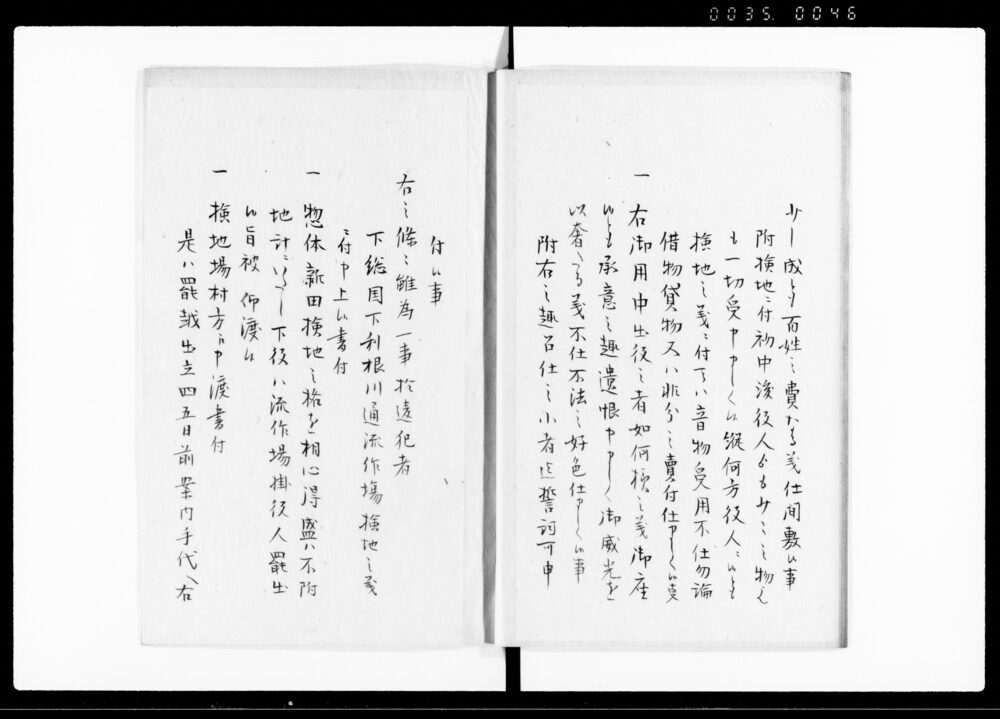 0035. 0046
少し成とも百姓之費なる義仕間敷候事
附検地ニ付初中後役人よりも少々之物も
も一切受申ましく候縦何方役人ニ候とも
検地之義ニ付而ハ音物受用不仕勿論
借物貸物又ハ非分之賣付仕ましく候事
一右御用中出役之者如何様之義御座
候とも承意之趣遺恨申ましく御威光を
以奢ヶ間敷義不仕不法之好色仕ましく候事
附右之趣召仕之小者迄誓詞可申
付候事
右之條々雖為一事於違犯者
下総国下利根川通流作場検地之義
ニ付申上候書付
一惣体新田検地之格を相心得盛ハ不附
地計ニいたし下役ハ流作場掛役人罷出
候旨被仰渡候
一検地場村方江申渡書付
是ハ罷越出立四五日前案内手代右